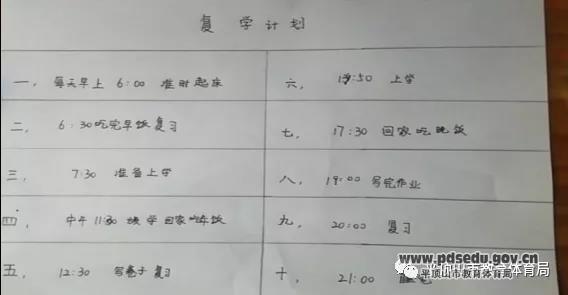 复学计划
一、每天早上 6:00 准时起床
二、6:30吃完早饭复习
三、7:30 准备上学
四、中午 11:30 放学 回家吃午饭
五、12:30 写卷子 复习
六、上学
七、17:30 回家吃晚饭
八、19:00 写完作业
九、20:00 复习
十、21:00
www.pdsedu.gov.cn
平顶山市教育体育局